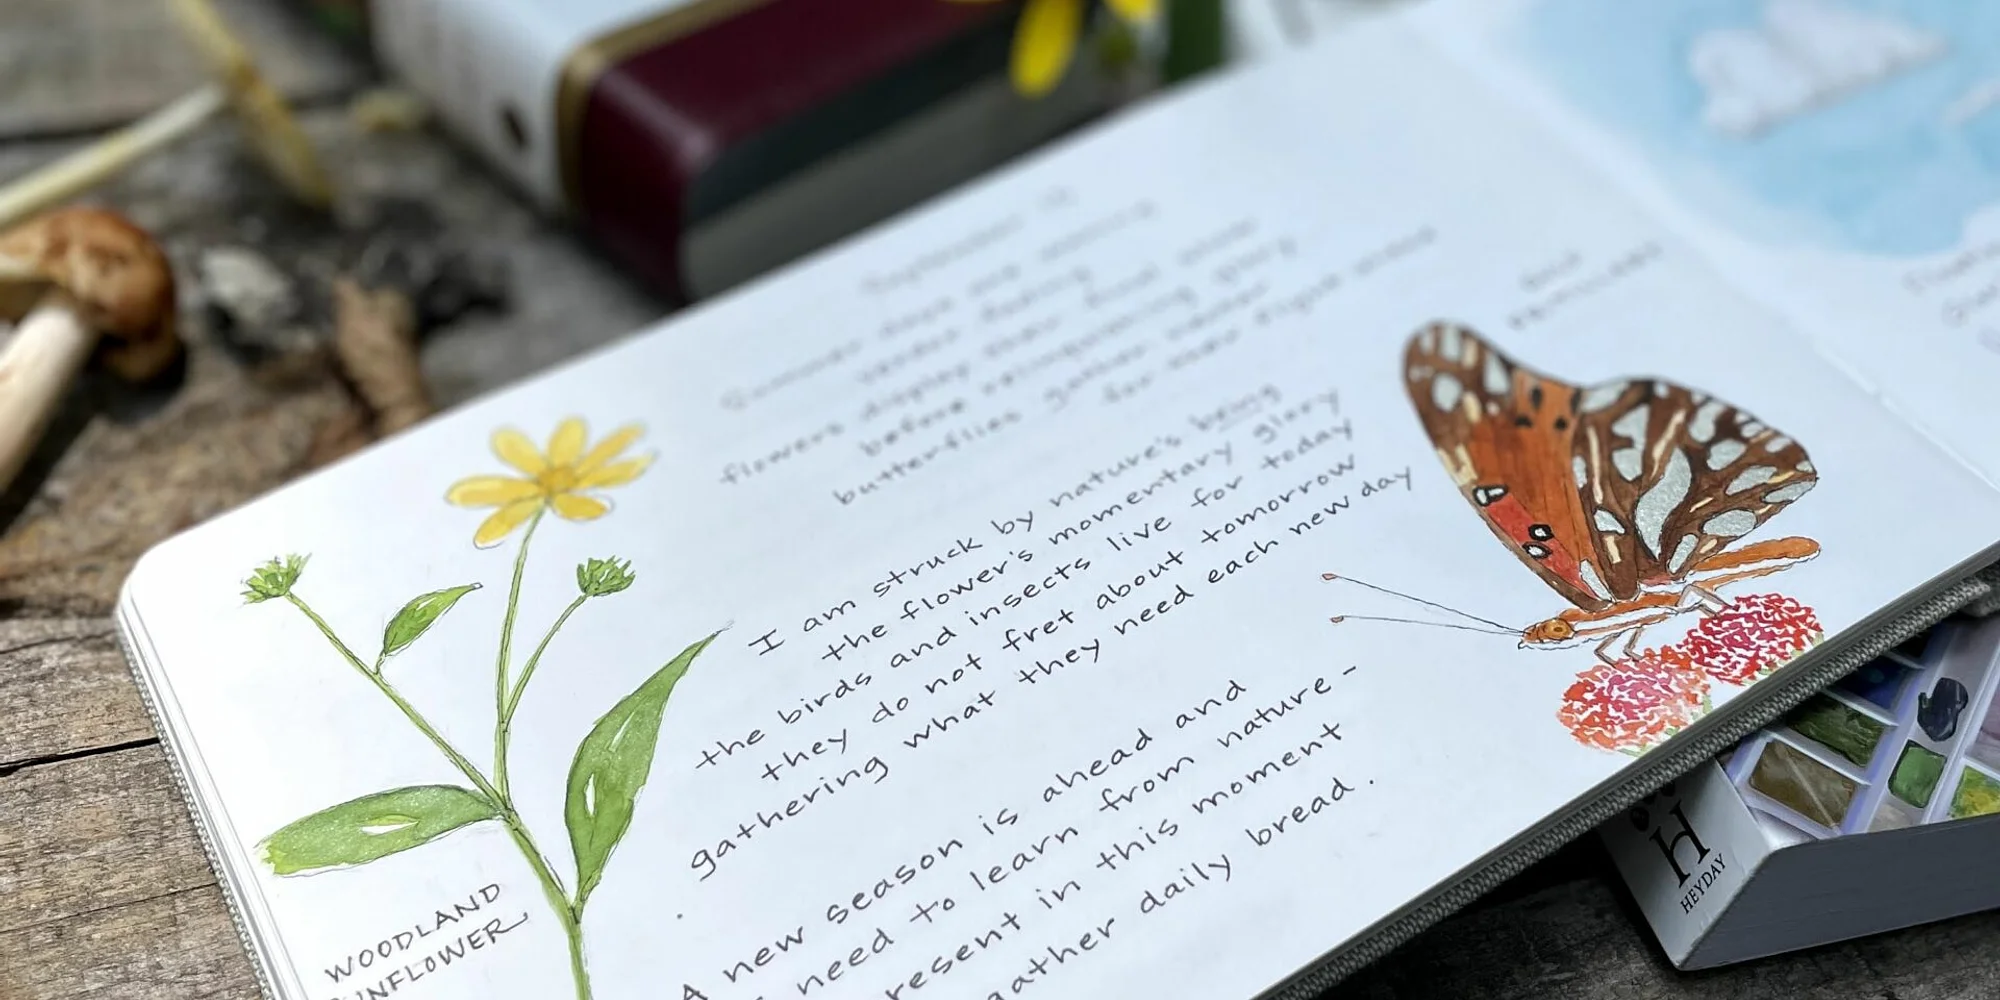 September 19
Summer days are waning
flowers display their final show
before relinquishing glory
butterflies gather nectar
for their flight ahead
I am struck by nature's being
the flower's momentary glory
the birds and insects live for today
they do not fret about tomorrow
gathering what they need each new day
A new season is ahead and
need to learn from nature -
resent in this moment
gather daily bread.
WOODLAND
SUNFLOWER
HEYDAY